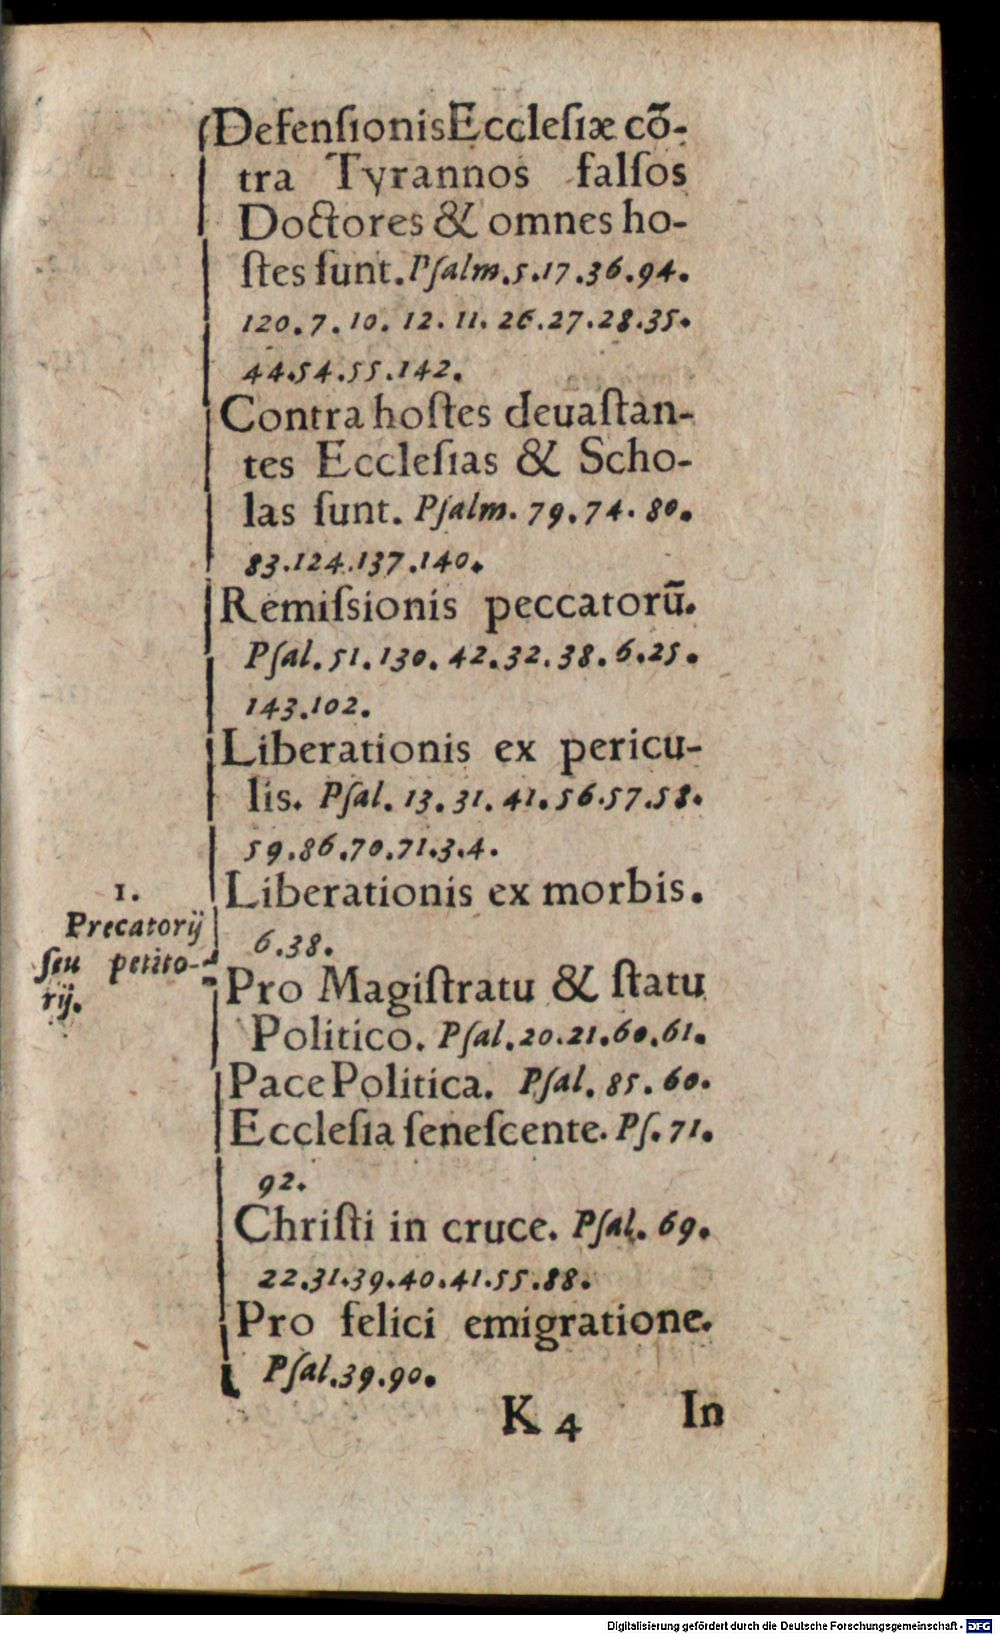 Defenſionis Eccleſiæ cõ-
tra Tyrannos falſos
Doctores & omnes ho-
ſtes ſunt. Pſalm. 5. 17. 36. 94.
120. 7. 10. 12. 11. 26. 27. 28. 35.
44. 54. 55. 142.
Contra hoſtes deuaſtan-
tes Eccleſias & Scho-
las ſunt. Pſalm. 79. 74. 80.
83. 124. 137. 140.
Remiſsionis peccatorũ.
Pſal. 51. 130. 42. 32. 38. 6. 25.
143. 102.
Liberationis ex pericu-
lis. Pſal. 13. 31. 41. 56. 57. 58.
59. 86. 70. 71. 3. 4.
Liberationis ex morbis.
6. 38.
1.
Precatorij
ſeu petito-
rij.
Pro Magiſtratu & ſtatu
Politico. Pſal. 20. 21. 60. 61.
Pace Politica. Pſal. 85. 60.
Eccleſia ſeneſcente. Pſ. 71.
92.
Chriſti in cruce. Pſal. 69.
22. 31. 39. 40. 41. 55. 88.
Pro felici emigratione.
Pſal. 39. 90.
K 4 In
Digitalisierung gefördert durch die Deutsche Forschungsgemeinschaft - DFG